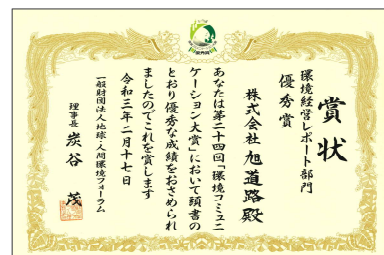 賞状
環境経営レポート部門
優秀賞
株式会社 旭道路殿
あなたは第二十四回「環境コミュニ
ケーション大賞」において頭書の
とおり優秀な成績をおさめられ
ましたのでこれを賞します
令和三年二月十七日
一般財団法人地球・人間環境フォーラム
理事長 炭谷 茂